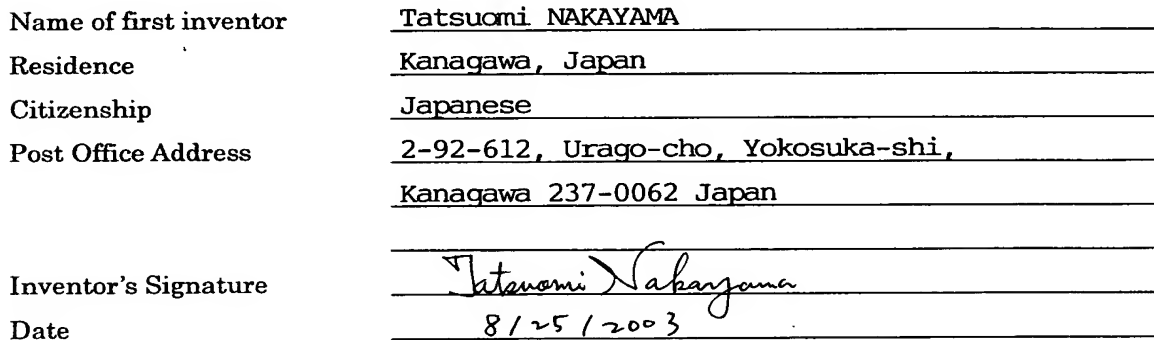 Name of first inventor Tatsuomi NAKAYAMA
Residence Kanagawa, Japan
Citizenship Japanese
Post Office Address 2-92-612, Urago-cho, Yokosuka-shi,
Kanagawa 237-0062 Japan
Inventor's Signature Tatsuomi Nakayama
Date 8/25/2003